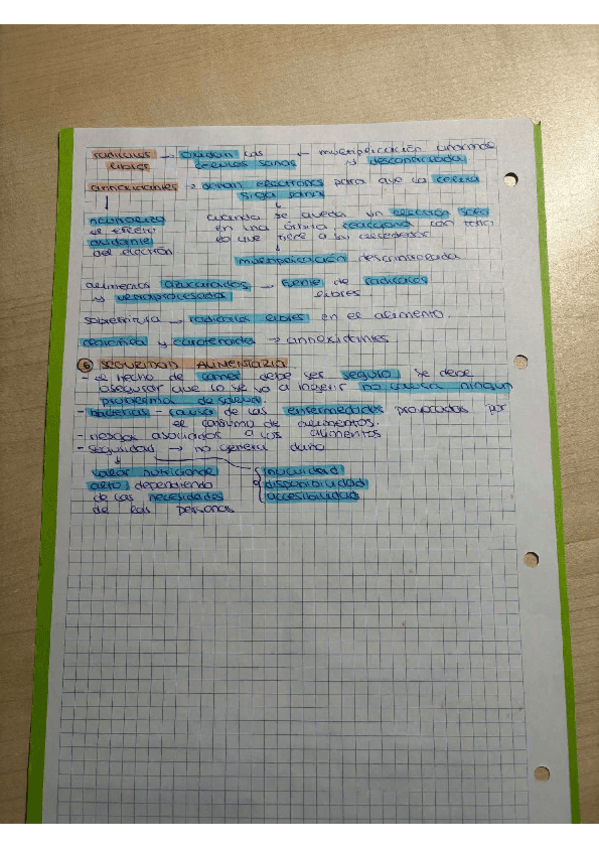 radicales → oxidan las ← multiplicación enormes
libres células sanas y descontrolada
antioxidantes → donan electrones para que la célula
siga sana
neutraliza cuando se queda un electrón solo
el efecto en una órbita, reacciona con
oxidante lo que tiene a su alrededor
del electrón
multiplicación descontrolada
alimentos azucarados → fuente de radicales
y ultraprocesados libres
sobrefritura → radicales libres en el alimento.
y carotenoide → antioxidantes
6 SEGURIDAD ALIMENTARIA
- el hecho de comer debe ser seguro. Se debe
asegurar que lo que se va a ingerir no causa ningún
problema de salud.
- bacterias - causa de las enfermedades provocadas por
el consumo de alimentos.
- riesgos asociados a los alimentos
- seguridad → no genera daño
valor nutricional inocuidad
alto dependiendo disponibilidad
de las necesidades accesibilidad
de las personas